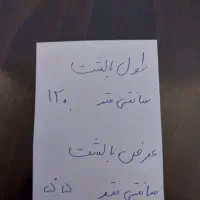 طول بالشت
سانتی متر ۱۲۰
عرض بالشت
سانتی متر ۵۵